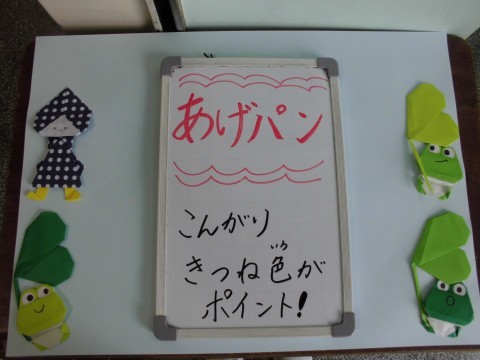 あげパン
こんがり
きつね色が
いろ
ポイント!